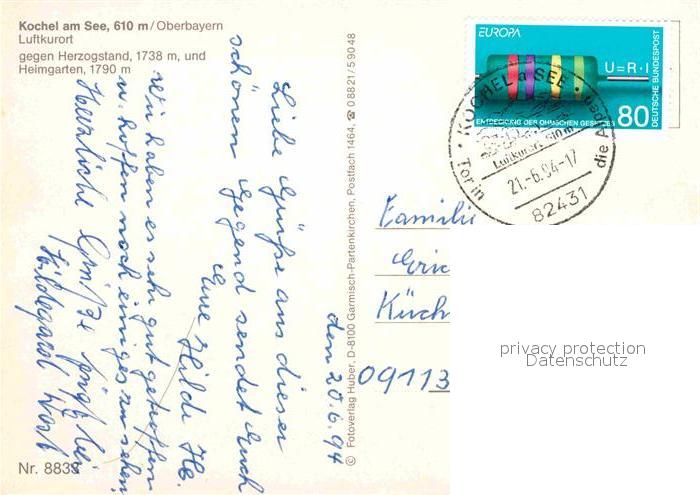 Kochel am See, 610 m/Oberbayern
Luftkurort
gegen Herzogstand, 1738 m, und
Heimgarten, 1790 m
den 20.6.94
Liebe Grüße aus dieser
schönen Gegend sendet Euch
Eure Hilde
Wir haben es sehr gut getroffen
u. hoffen noch einiges zu sehen.
Herzliche Grüße
Hildegard
Nr. 8833
© Fotoverlag Huber, D-8100 Garmisch-Partenkirchen, Postfach 1464, ☎ 0 88 21/5 90 48
EUROPA
U=R·I
ENTDECKUNG DES OHMSCHEN GESETZES
80
DEUTSCHE BUNDESPOST
KOCHEL a. SEE
Luftkurort 610 m
21.-6.94-17
82431
Tor in die
Familie
Küch
09113
privacy protection
Datenschutz